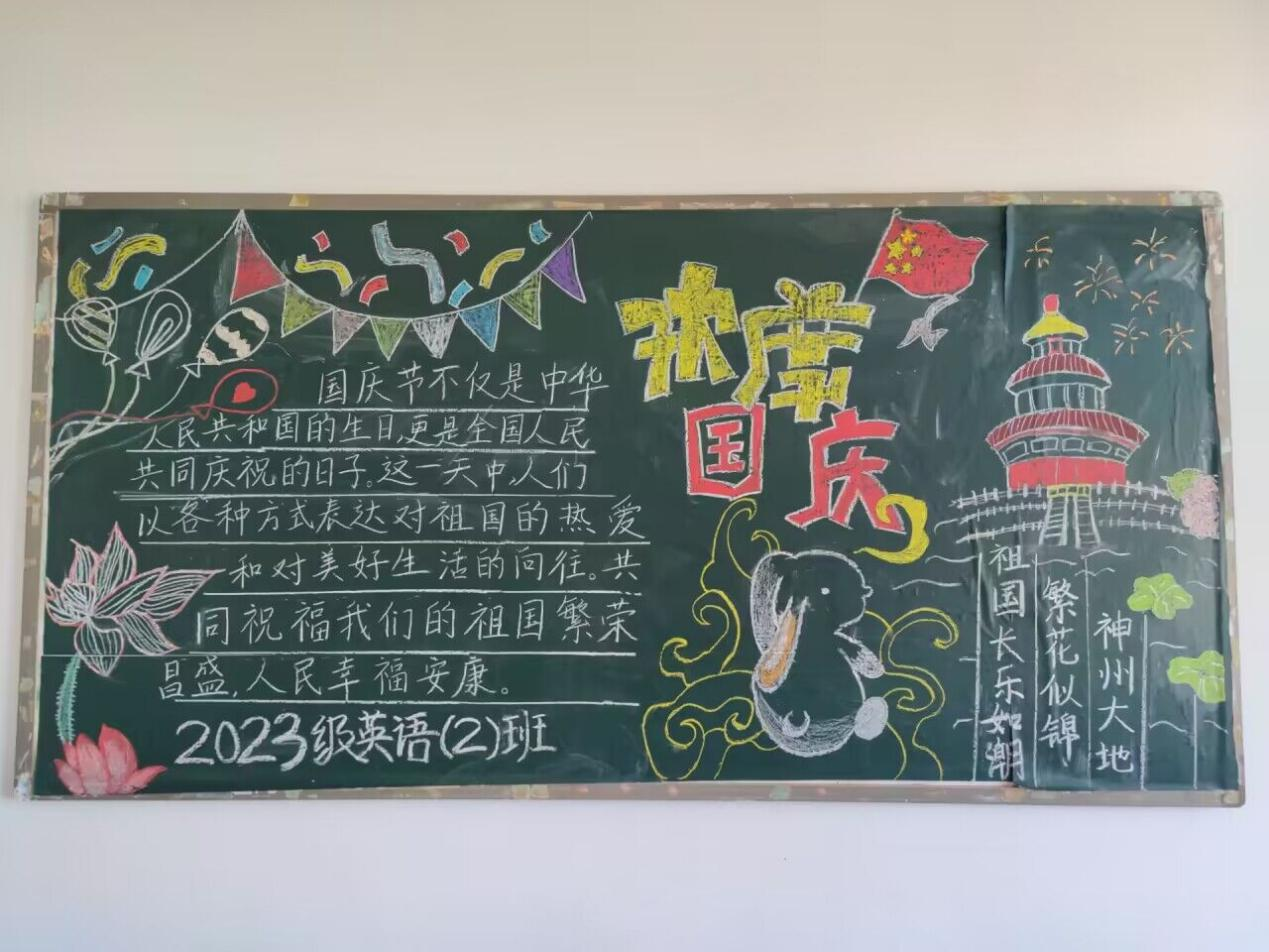 国庆节不仅是中华
人民共和国的生日,更是全国人民
共同庆祝的日子。这一天中,人们
以各种方式表达对祖国的热爱
和对美好生活的向往。共
同祝福我们的祖国繁荣
昌盛,人民幸福安康。
2023级英语(2)班
欢度
国庆
神州大地
繁花似锦
祖国长乐如潮